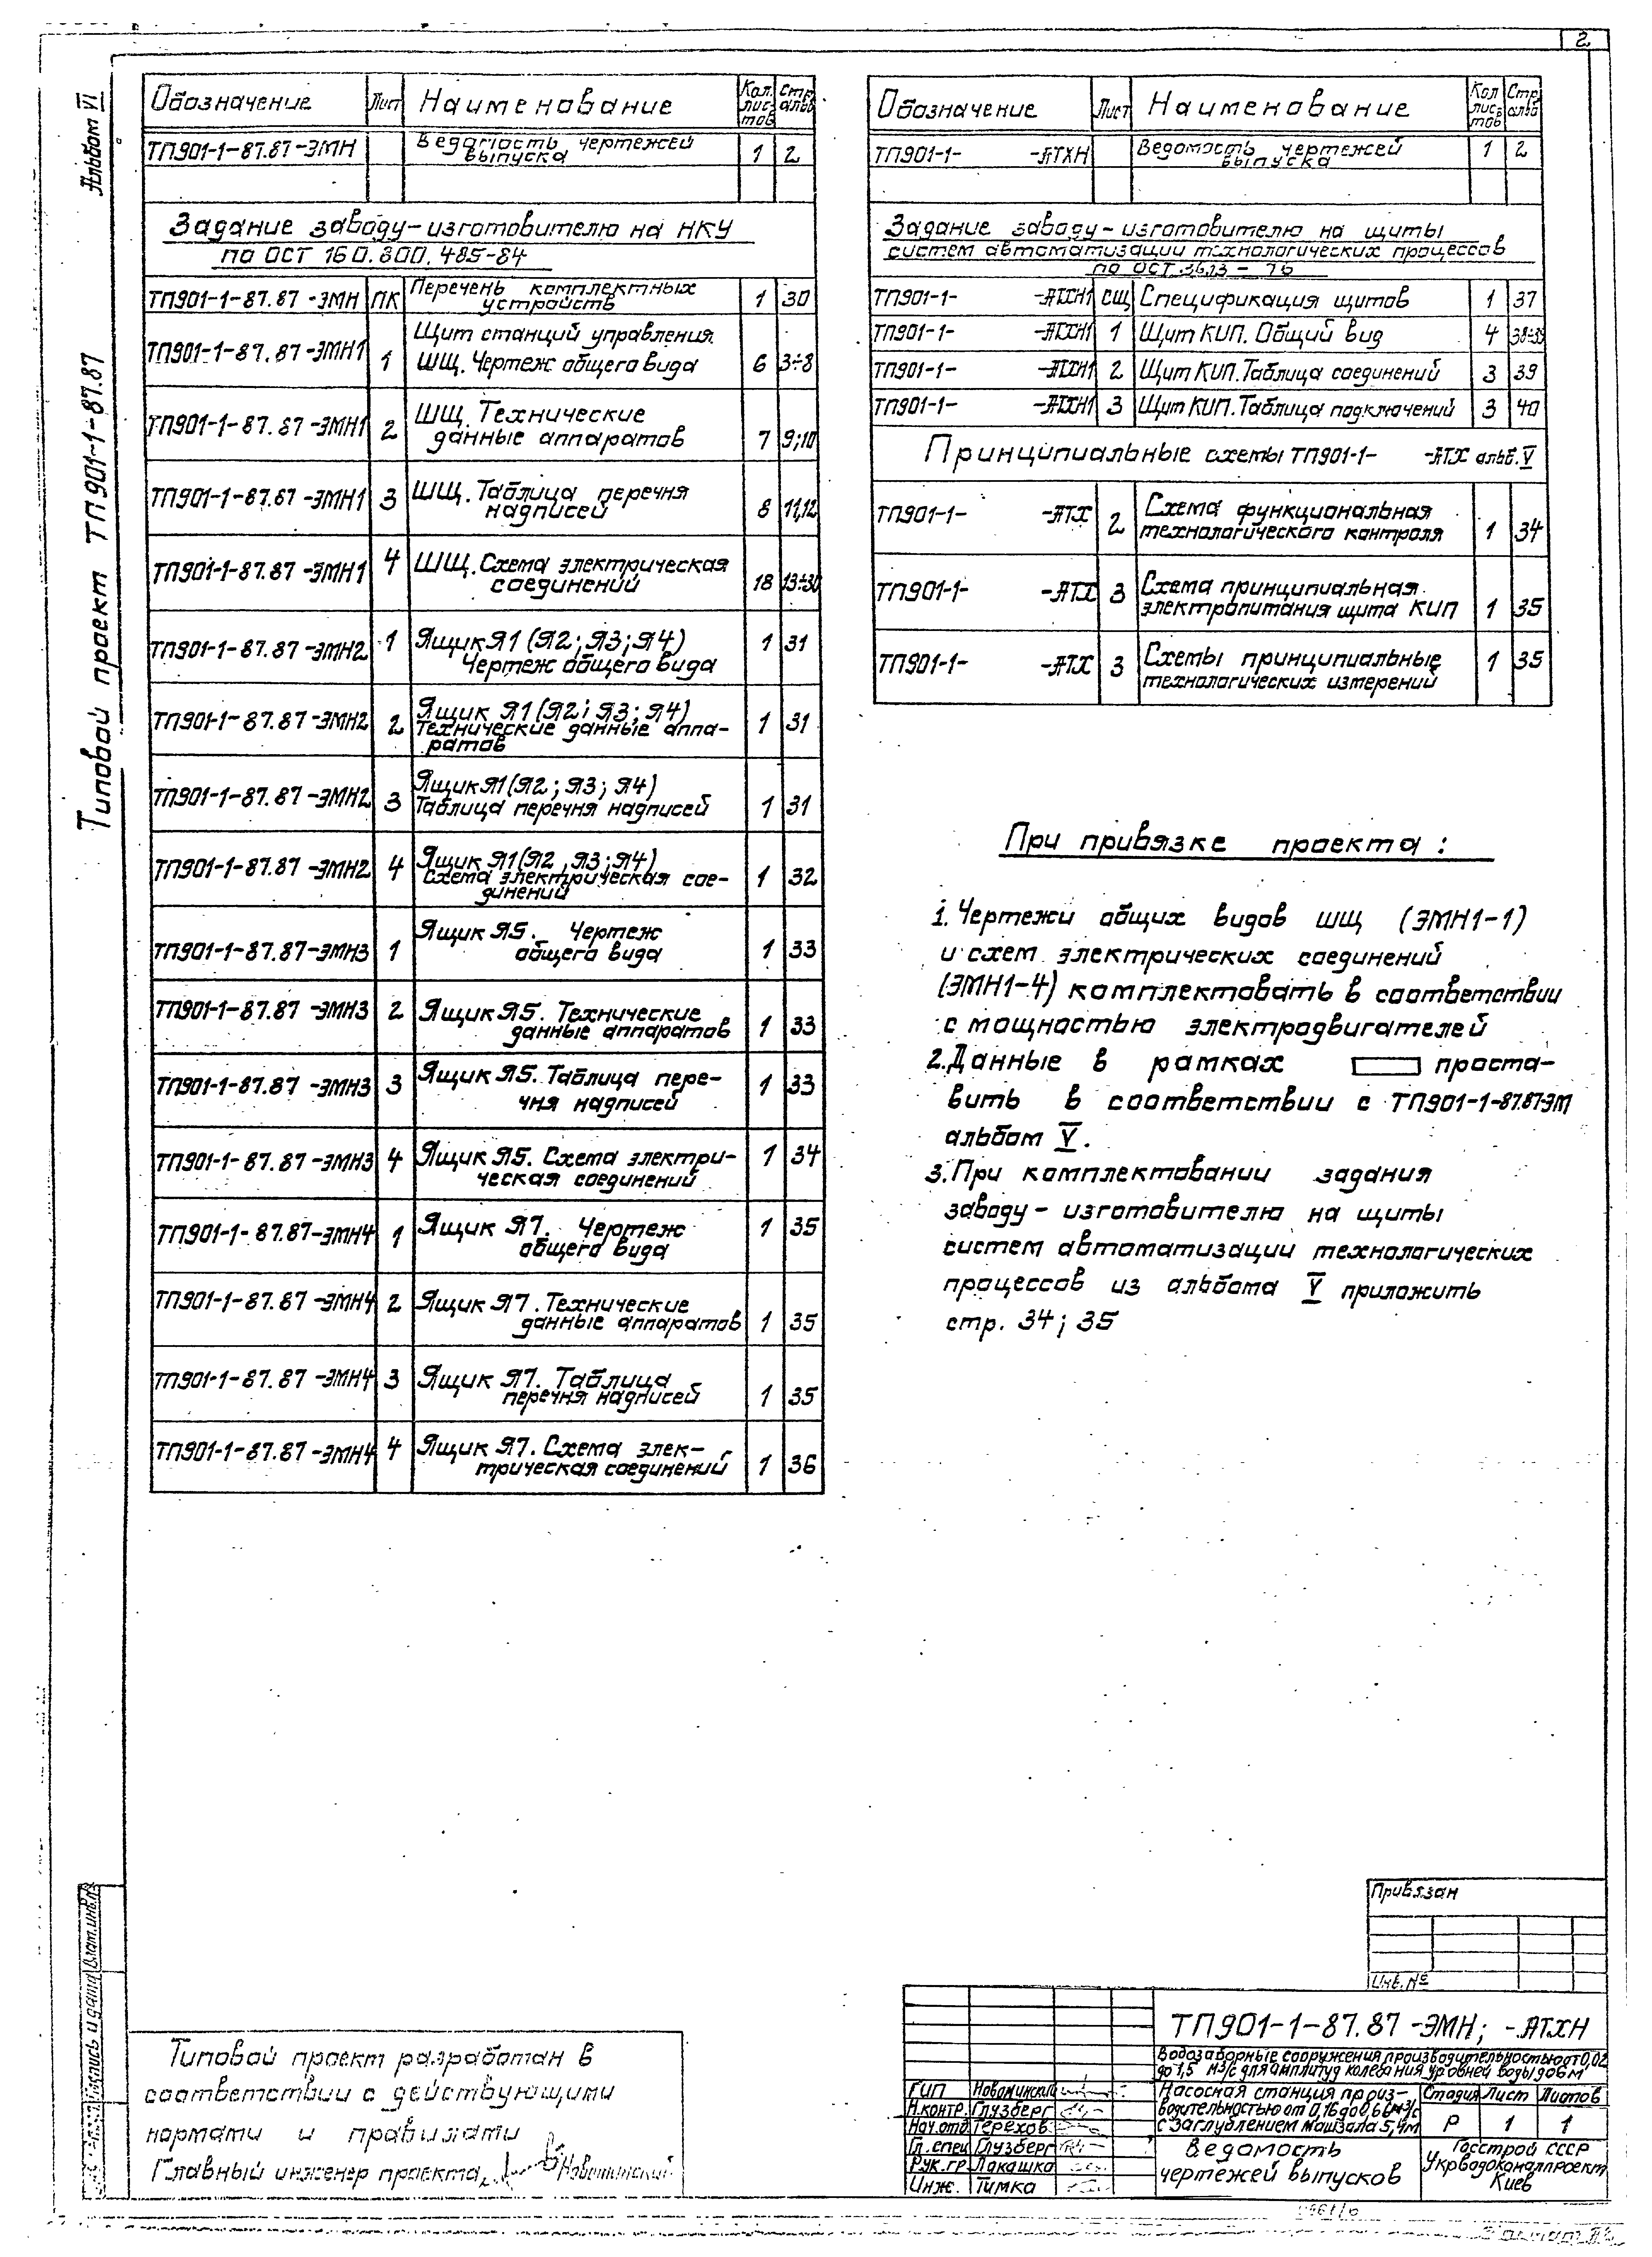 2
Альбом VI
Типовой проект ТП901-1-87.87
Обозначение Лист Наименование Кол. лис- тов Стр. альб
ТП901-1-87.87-ЭМН Ведомость чертежей выпуска 1 2
Задание заводу-изготовителю на НКУ
по ОСТ 160.800.485-84
ТП901-1-87.87-ЭМН ПК Перечень комплектных устройств 1 30
ТП901-1-87.87-ЭМН1 1 Щит станций управления ШЩ. Чертеж общего вида 6 3÷8
ТП901-1-87.87-ЭМН1 2 ШЩ. Технические данные аппаратов 7 9;10
ТП901-1-87.87-ЭМН1 3 ШЩ. Таблица перечня надписей 8 11,12
ТП901-1-87.87-ЭМН1 4 ШЩ. Схема электрическая соединений 18 13÷30
ТП901-1-87.87-ЭМН2 1 Ящик Я1 (Я2; Я3; Я4) Чертеж общего вида 1 31
ТП901-1-87.87-ЭМН2 2 Ящик Я1 (Я2; Я3; Я4) Технические данные аппа- ратов 1 31
ТП901-1-87.87-ЭМН2 3 Ящик Я1 (Я2; Я3; Я4) Таблица перечня надписей 1 31
ТП901-1-87.87-ЭМН2 4 Ящик Я1 (Я2, Я3; Я4) Схема электрическая сое- динений 1 32
ТП901-1-87.87-ЭМН3 1 Ящик Я5. Чертеж общего вида 1 33
ТП901-1-87.87-ЭМН3 2 Ящик Я5. Технические данные аппаратов 1 33
ТП901-1-87.87-ЭМН3 3 Ящик Я5. Таблица пере- чня надписей 1 33
ТП901-1-87.87-ЭМН3 4 Ящик Я5. Схема электри- ческая соединений 1 34
ТП901-1-87.87-ЭМН4 1 Ящик Я7. Чертеж общего вида 1 35
ТП901-1-87.87-ЭМН4 2 Ящик Я7. Технические данные аппаратов 1 35
ТП901-1-87.87-ЭМН4 3 Ящик Я7. Таблица перечня надписей 1 35
ТП901-1-87.87-ЭМН4 4 Ящик Я7. Схема элек- трическая соединений 1 36
Обозначение Лист Наименование Кол лис- тов Стр. альб
ТП901-1- -АТХН Ведомость чертежей выпуска 1 2
Задание заводу-изготовителю на щиты
систем автоматизации технологических процессов
по ОСТ 36.13-76
ТП901-1- -АТХН1 СЩ Спецификация щитов 1 37
ТП901-1- -АТХН1 1 Щит КИП. Общий вид 4 38÷39
ТП901-1- -АТХН1 2 Щит КИП. Таблица соединений 3 39
ТП901-1- -АТХН1 3 Щит КИП. Таблица подключений 3 40
Принципиальные схемы ТП901-1- -АТХ альб. V
ТП901-1- -АТХ 2 Схема функциональная технологического контроля 1 34
ТП901-1- -АТХ 3 Схема принципиальная электропитания щита КИП 1 35
ТП901-1- -АТХ 3 Схемы принципиальные технологических измерений 1 35
При привязке проекта:
1. Чертежи общих видов ШЩ (ЭМН1-1)
и схем электрических соединений
(ЭМН1-4) комплектовать в соответствии
с мощностью электродвигателей
2. Данные в рамках проста-
вить в соответствии с ТП901-1-87.87-ЭМ
альбом V.
3. При комплектовании задания
заводу-изготовителю на щиты
систем автоматизации технологических
процессов из альбома V приложить
стр. 34; 35
Привязан
Инв. №
Взам. инв. №
Подпись и дата
Типовой проект разработан в
соответствии с действующими
нормами и правилами
Главный инженер проекта Новоминский
ТП901-1-87.87-ЭМН; -АТХН
Водозаборные сооружения производительностью от 0,02
до 1,5 м3/с для амплитуд колебания уровней воды до 6 м
ГИП Новоминский
Н.контр. Глузберг
Нач.отд Терехов
Гл.спец Глузберг
Рук.гр Лакашка
Инж. Тимка
Насосная станция произ-
водительностью от 0,16 до 0,6 м3/с
с заглублением машзала 5,4м
Стадия Лист Листов
Р 1 1
Ведомость
чертежей выпусков
Госстрой СССР
Укрводоканалпроект
Киев